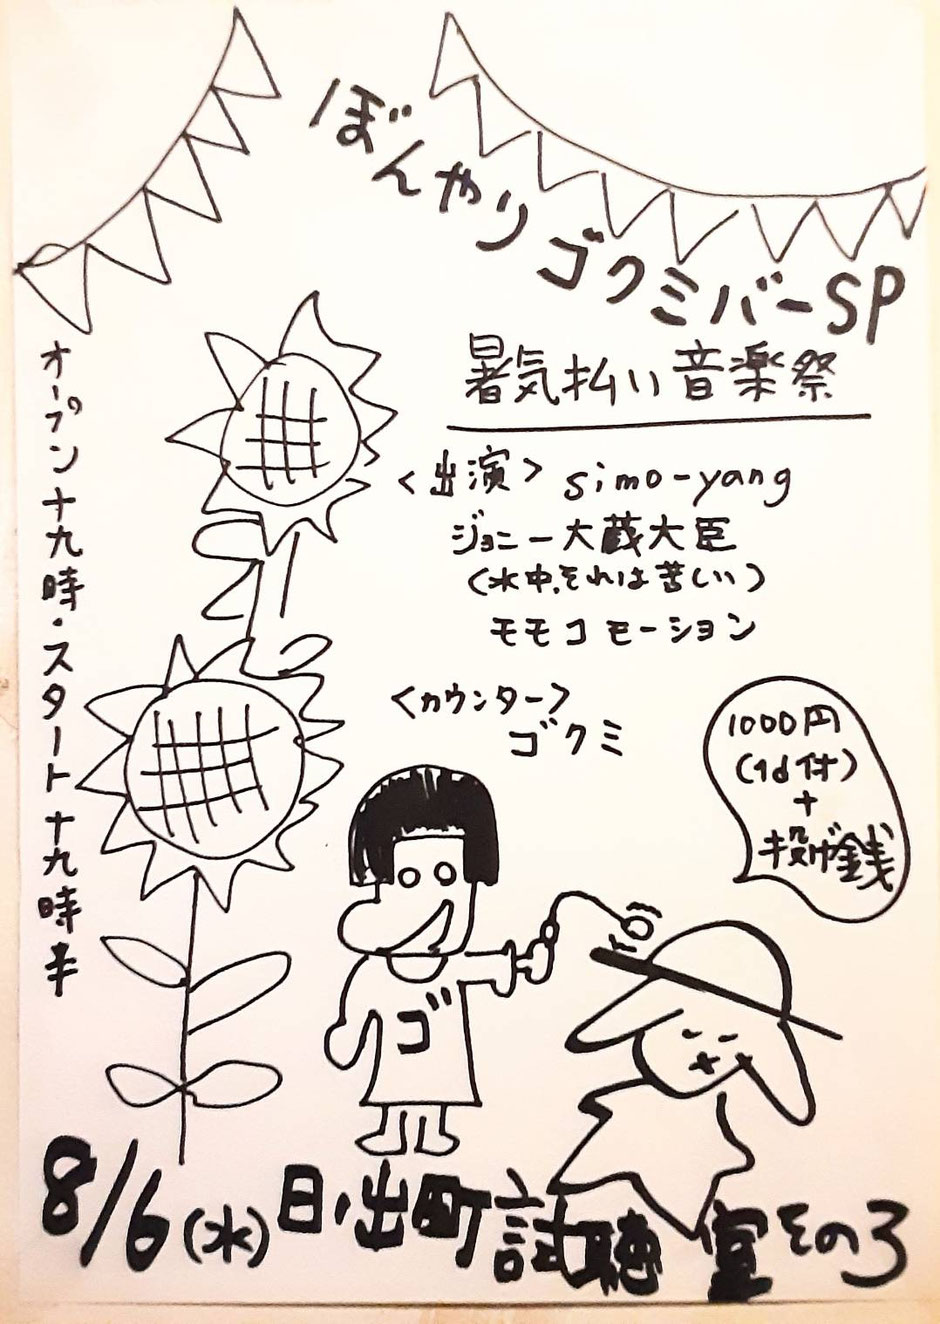 ぼんやりゴクミバーSP
暑気払い音楽祭
オープン十九時・スタート十九時半
<出演> simo-yang
ジョニー大蔵大臣
(水中、それは苦しい)
モモコモーション
<カウンター>
ゴクミ
1000円
(1d付)
+
投げ銭
ゴ
8/6(水)日ノ出町試聴室その3